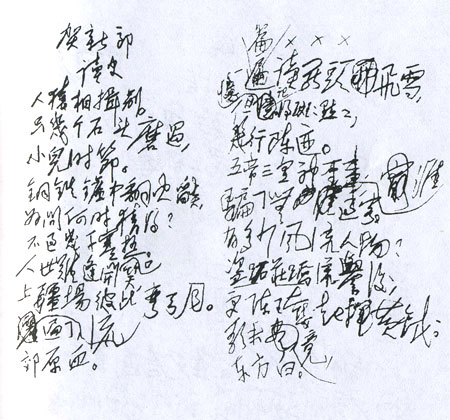 贺新郎
读史
人猿相揖别。
只幾个石头磨过,
小儿时节。
铜铁炉中翻火焰,
为问何时猜得?
不过幾千寒热。
人世难逢开口笑。
上疆场彼此弯弓月。
流
郊原血。
篇 × × ×
读罢头飞雪,
记得
幾行陈迹。
五帝三皇神圣事,
骗了无涯过客。
有多少风流人物?
盗跖庄蹻流誉后,
更陈王奋起挥黄钺。
歌未竟,
东方白。